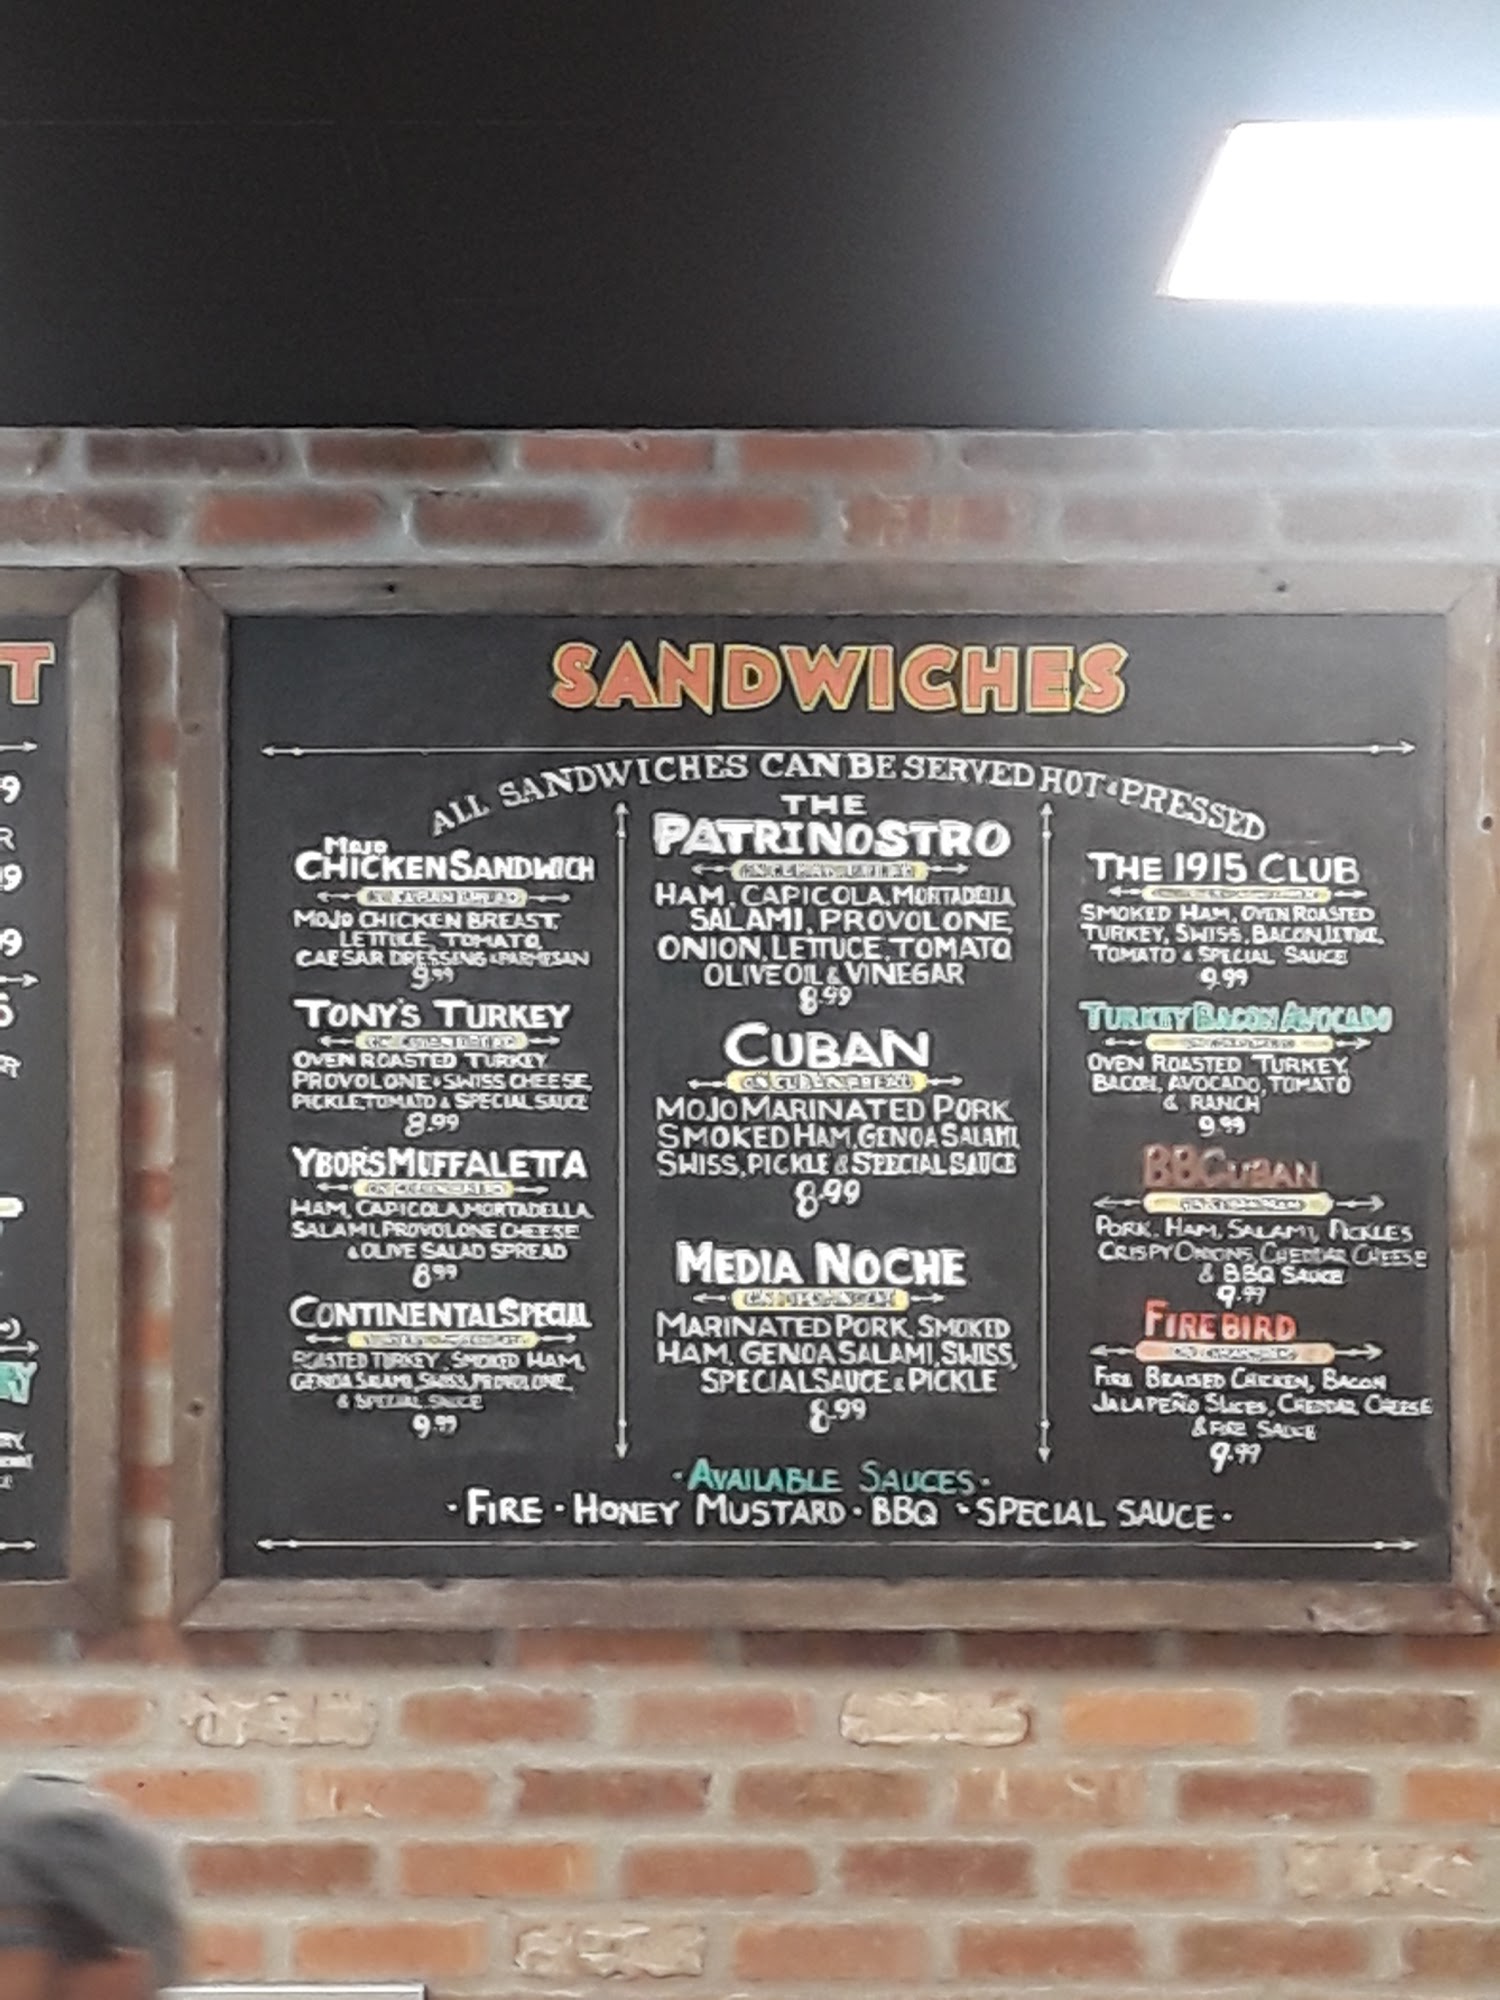 SANDWICHES
ALL SANDWICHES CAN BE SERVED HOT & PRESSED
MOJO
CHICKEN SANDWICH
CUBAN BREAD
MOJO CHICKEN BREAST,
LETTUCE, TOMATO,
CAESAR DRESSING & PARMESAN
9.99
TONY'S TURKEY
ON CUBAN BREAD
OVEN ROASTED TURKEY,
PROVOLONE & SWISS CHEESE,
PICKLE, TOMATO & SPECIAL SAUCE
8.99
YBOR'S MUFFALETTA
HAM, CAPICOLA, MORTADELLA,
SALAMI, PROVOLONE CHEESE
& OLIVE SALAD SPREAD
8.99
CONTINENTAL SPECIAL
ROASTED TURKEY, SMOKED HAM,
GENOA SALAMI, SWISS, PROVOLONE,
& SPECIAL SAUCE
9.99
THE
PATRINOSTRO
ON CUBAN BREAD
HAM, CAPICOLA, MORTADELLA,
SALAMI, PROVOLONE,
ONION, LETTUCE, TOMATO,
OLIVE OIL & VINEGAR
8.99
CUBAN
ON CUBAN BREAD
MOJO MARINATED PORK,
SMOKED HAM, GENOA SALAMI,
SWISS, PICKLE & SPECIAL SAUCE
8.99
MEDIA NOCHE
MARINATED PORK, SMOKED
HAM, GENOA SALAMI, SWISS,
SPECIAL SAUCE & PICKLE
8.99
THE 1915 CLUB
SMOKED HAM, OVEN ROASTED
TURKEY, SWISS, BACON, LETTUCE,
TOMATO & SPECIAL SAUCE
9.99
TURKEY BACON AVOCADO
OVEN ROASTED TURKEY,
BACON, AVOCADO, TOMATO
& RANCH
9.99
BBCUBAN
PORK, HAM, SALAMI, PICKLES
CRISPY ONIONS, CHEDDAR CHEESE
& BBQ SAUCE
9.99
FIREBIRD
FIRE BRAISED CHICKEN, BACON
JALAPEÑO SLICES, CHEDDAR CHEESE
& FIRE SAUCE
9.99
· AVAILABLE SAUCES ·
· FIRE · HONEY MUSTARD · BBQ · SPECIAL SAUCE ·